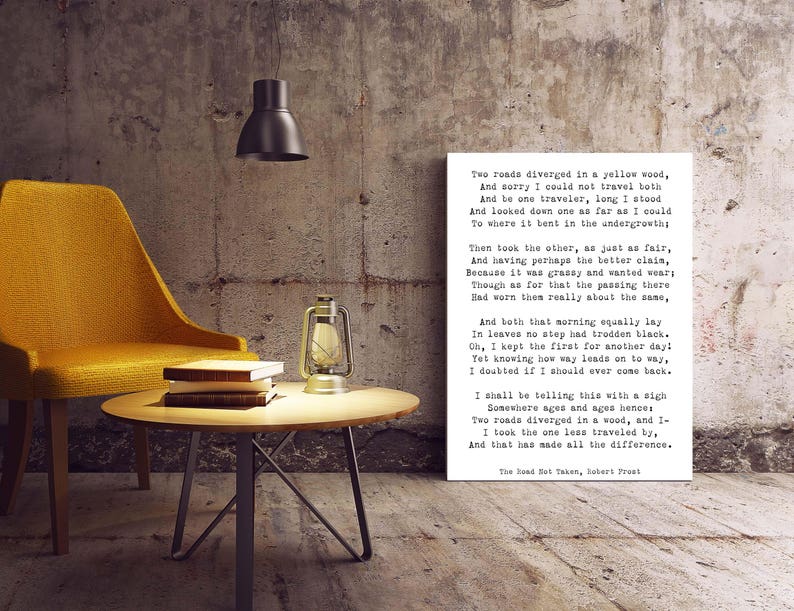 Two roads diverged in a yellow wood,
And sorry I could not travel both
And be one traveler, long I stood
And looked down one as far as I could
To where it bent in the undergrowth;
Then took the other, as just as fair,
And having perhaps the better claim,
Because it was grassy and wanted wear;
Though as for that the passing there
Had worn them really about the same,
And both that morning equally lay
In leaves no step had trodden black.
Oh, I kept the first for another day!
Yet knowing how way leads on to way,
I doubted if I should ever come back.
I shall be telling this with a sigh
Somewhere ages and ages hence:
Two roads diverged in a wood, and I-
I took the one less traveled by,
And that has made all the difference.
The Road Not Taken, Robert Frost